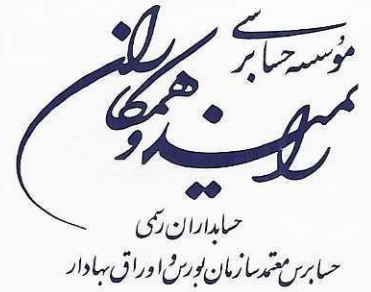 مؤسسه حسابرسی
رایمند و همکاران
حسابداران رسمی
حسابرس معتمد سازمان بورس و اوراق بهادار